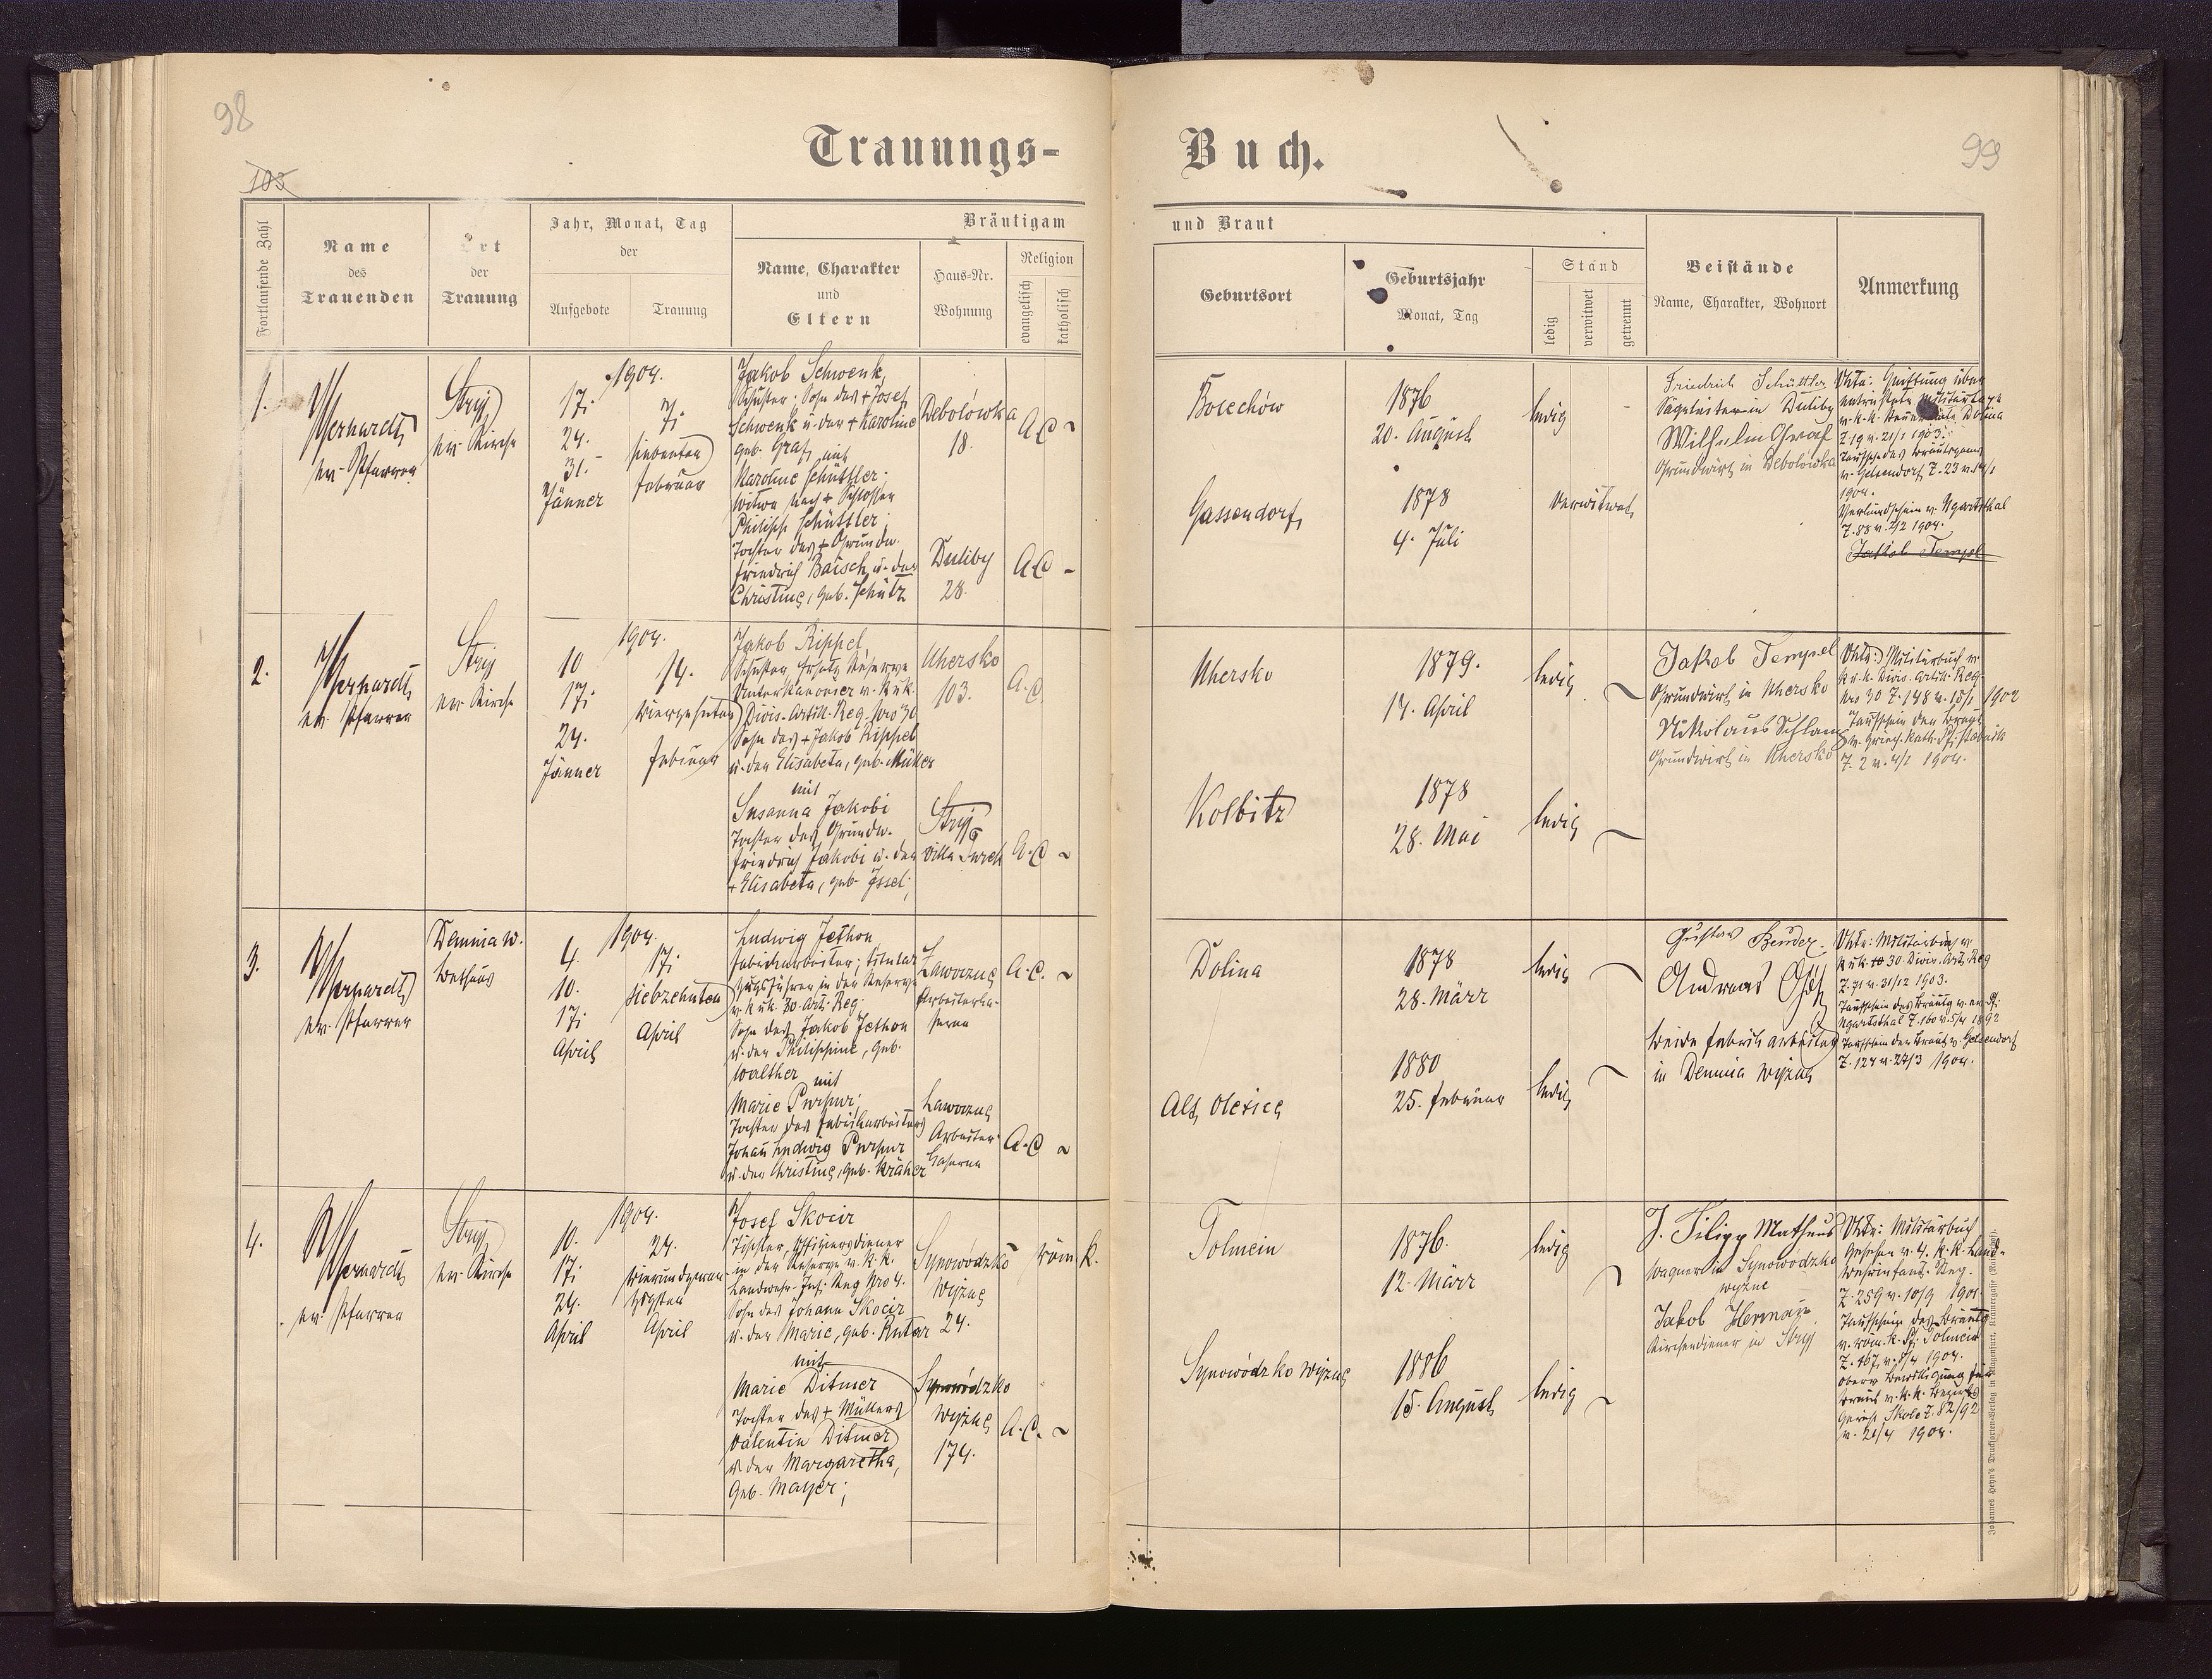 98
99
103
Trauungs-
Buch.
Fortlaufende Zahl
Name
des
Trauenden
Ort
der
Trauung
Jahr, Monat, Tag
der
Aufgebote
Trauung
Bräutigam
und Braut
Name, Charakter
und
Eltern
Haus-Nr.
Wohnung
Religion
evangelisch
katholisch
Geburtsort
Geburtsjahr
Monat, Tag
Stand
ledig
verwitwet
getrennt
Beistände
Name, Charakter, Wohnort
Anmerkung
1.
ev. Pfarrer
Stryj
ev. Kirche
1904.
17.
24.
31.
Jänner
7.
siebenten
Februar
Jakob Schwenk,
Schuster; Sohn des + Josef
Schwenk u. der + Karoline
geb. Graf, mit
Karoline Schüttler;
Witwe nach + Schlosser
Philipp Schüttler;
Tochter des + Grundw.
Friedrich Baisch u. der
Christine, geb. Schütz
Debolówka
18.
A.C. -
Duliby
28.
A.C. -
Bolechów
1876
20. August
ledig
Gassendorf
1878
4. Juli
verwitwet
Friedrich Schüttler
in Duliby
Wilhelm Graf
Grundwirt in Debolówka
Z. 19 v. 21/1 1903.
Taufschein des Bräutigams
v. Gelsendorf Z. 23 v.
1904.
Verkündschein v. Ugartsthal
Z. 88 v. 2/2 1904.
Jakob Tempel
2.
ev. Pfarrer
Stryj
ev. Kirche
1904.
10
17.
24.
Jänner
14.
vierzehnten
Februar
Jakob Rippel
Schuster, Ersatz Reserve
Unterkanonier v. k.u.k.
Divis. Artill. Reg. Nro 30
Sohn des + Jakob Rippel
u. der Elisabeta, geb. Müller
mit
Susanna Jakobi
Tochter des Grundw.
Friedrich Jakobi u. der
+ Elisabeta, geb. Issel;
Uhersko
103.
A.C.
Stryj
Villa
A.C. -
Uhersko
1879.
14. April
ledig
Kolbitz
1878
28. Mai
ledig
Jakob Tempel
Grundwirt in Uhersko
Nikolaus Schlamp
Grundwirt in Uhersko
Militärbuch v.
k.u.k. Divis. Artill. Reg.
Nro 30 Z. 148 v. 15/1 1902
Taufschein der Braut
Z. 2 v. 4/2 1904.
3.
ev. Pfarrer
Demnia w.
Bethaus
1904.
4.
10.
17.
April
17.
siebzehnten
April
Ludwig Jethon
Fabriksarbeiter; titular
Zugsführer in der Reserve
v. k.u.k. 30. Art. Reg.
Sohn des Jakob Jethon
u. der Philippine, geb.
Walther mit
Marie Purpur;
Tochter des Fabriksarbeiters
Johann Ludwig Purpur
u. der Christine, geb. Krämer
Ławoczne
Arbeiterka-
serne
A.C. -
Ławoczne
Arbeiter
Caserne
A.C. -
Dolina
1878
28. März
ledig
Alt Oleszice
1880
25. Februar
ledig
Gustav Bender.
Andreas
beide Fabriksarbeiter
in Demnia wyżna
Militärbuch v.
k.u.k. 30. Divis. Art. Reg
Z. 71 v. 31/12 1903.
Taufschein des Bräutig. v. ev. Pf.
Ugartsthal Z. 160 v. 5/4 1892
Taufschein der Braut v. Gelsendorf
Z. 124 v. 27/3 1904.
4.
ev. Pfarrer
Stryj
ev. Kirche
1904.
10.
17.
24.
April
24.
vierundzwan-
zigsten
April
Josef Skocir
Tischler, Offiziersdiener
in der Reserve v. k.k.
Landwehr-Inf. Reg Nro 4.
Sohn des Johann Skocir
u. der Marie, geb. Rutar
mit
Marie Ditmer
Tochter des + Müllers
Valentin Ditmer
u. der Margaretha,
geb. Mayer;
Synowódzko
wyżne
24.
röm. k.
Synowódzko
wyżne
174.
A.C. -
Tolmein
1876.
12. März
ledig
Synowódzko wyżne
1886
15. August
ledig
J. Filipp Matheus
Wagner in Synowódzko
wyżne
Jakob Herman
Kirchendiener in Stryj
Militärbuch
gesehen v. 4. k.k. Land-
wehrinfant. Reg.
Z. 259 v. 10/9 1901.
Taufschein des Bräutig.
v. röm. k. Pf. Tolmein
Z. 167 v. 8/4 1904.
oberv. Bewilligung für
Braut v. k.k. Bezirks
Gericht Skole Z. 82/92
v. 21/4 1904.